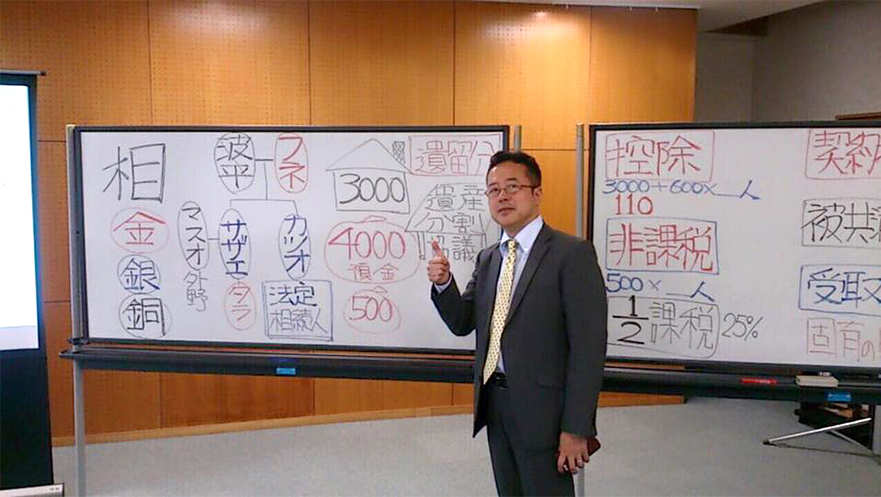 相
金
銀
銅
波平
フネ
マスオ
外野
サザエ
カツオ
タラ
法定
相続人
3000
4000
預金
500
遺留分
遺産
分割
協議
控除
3000+600×__人
110
非課税
500×__人
1/2 課税 25%
契約
被共済
受取
固有の